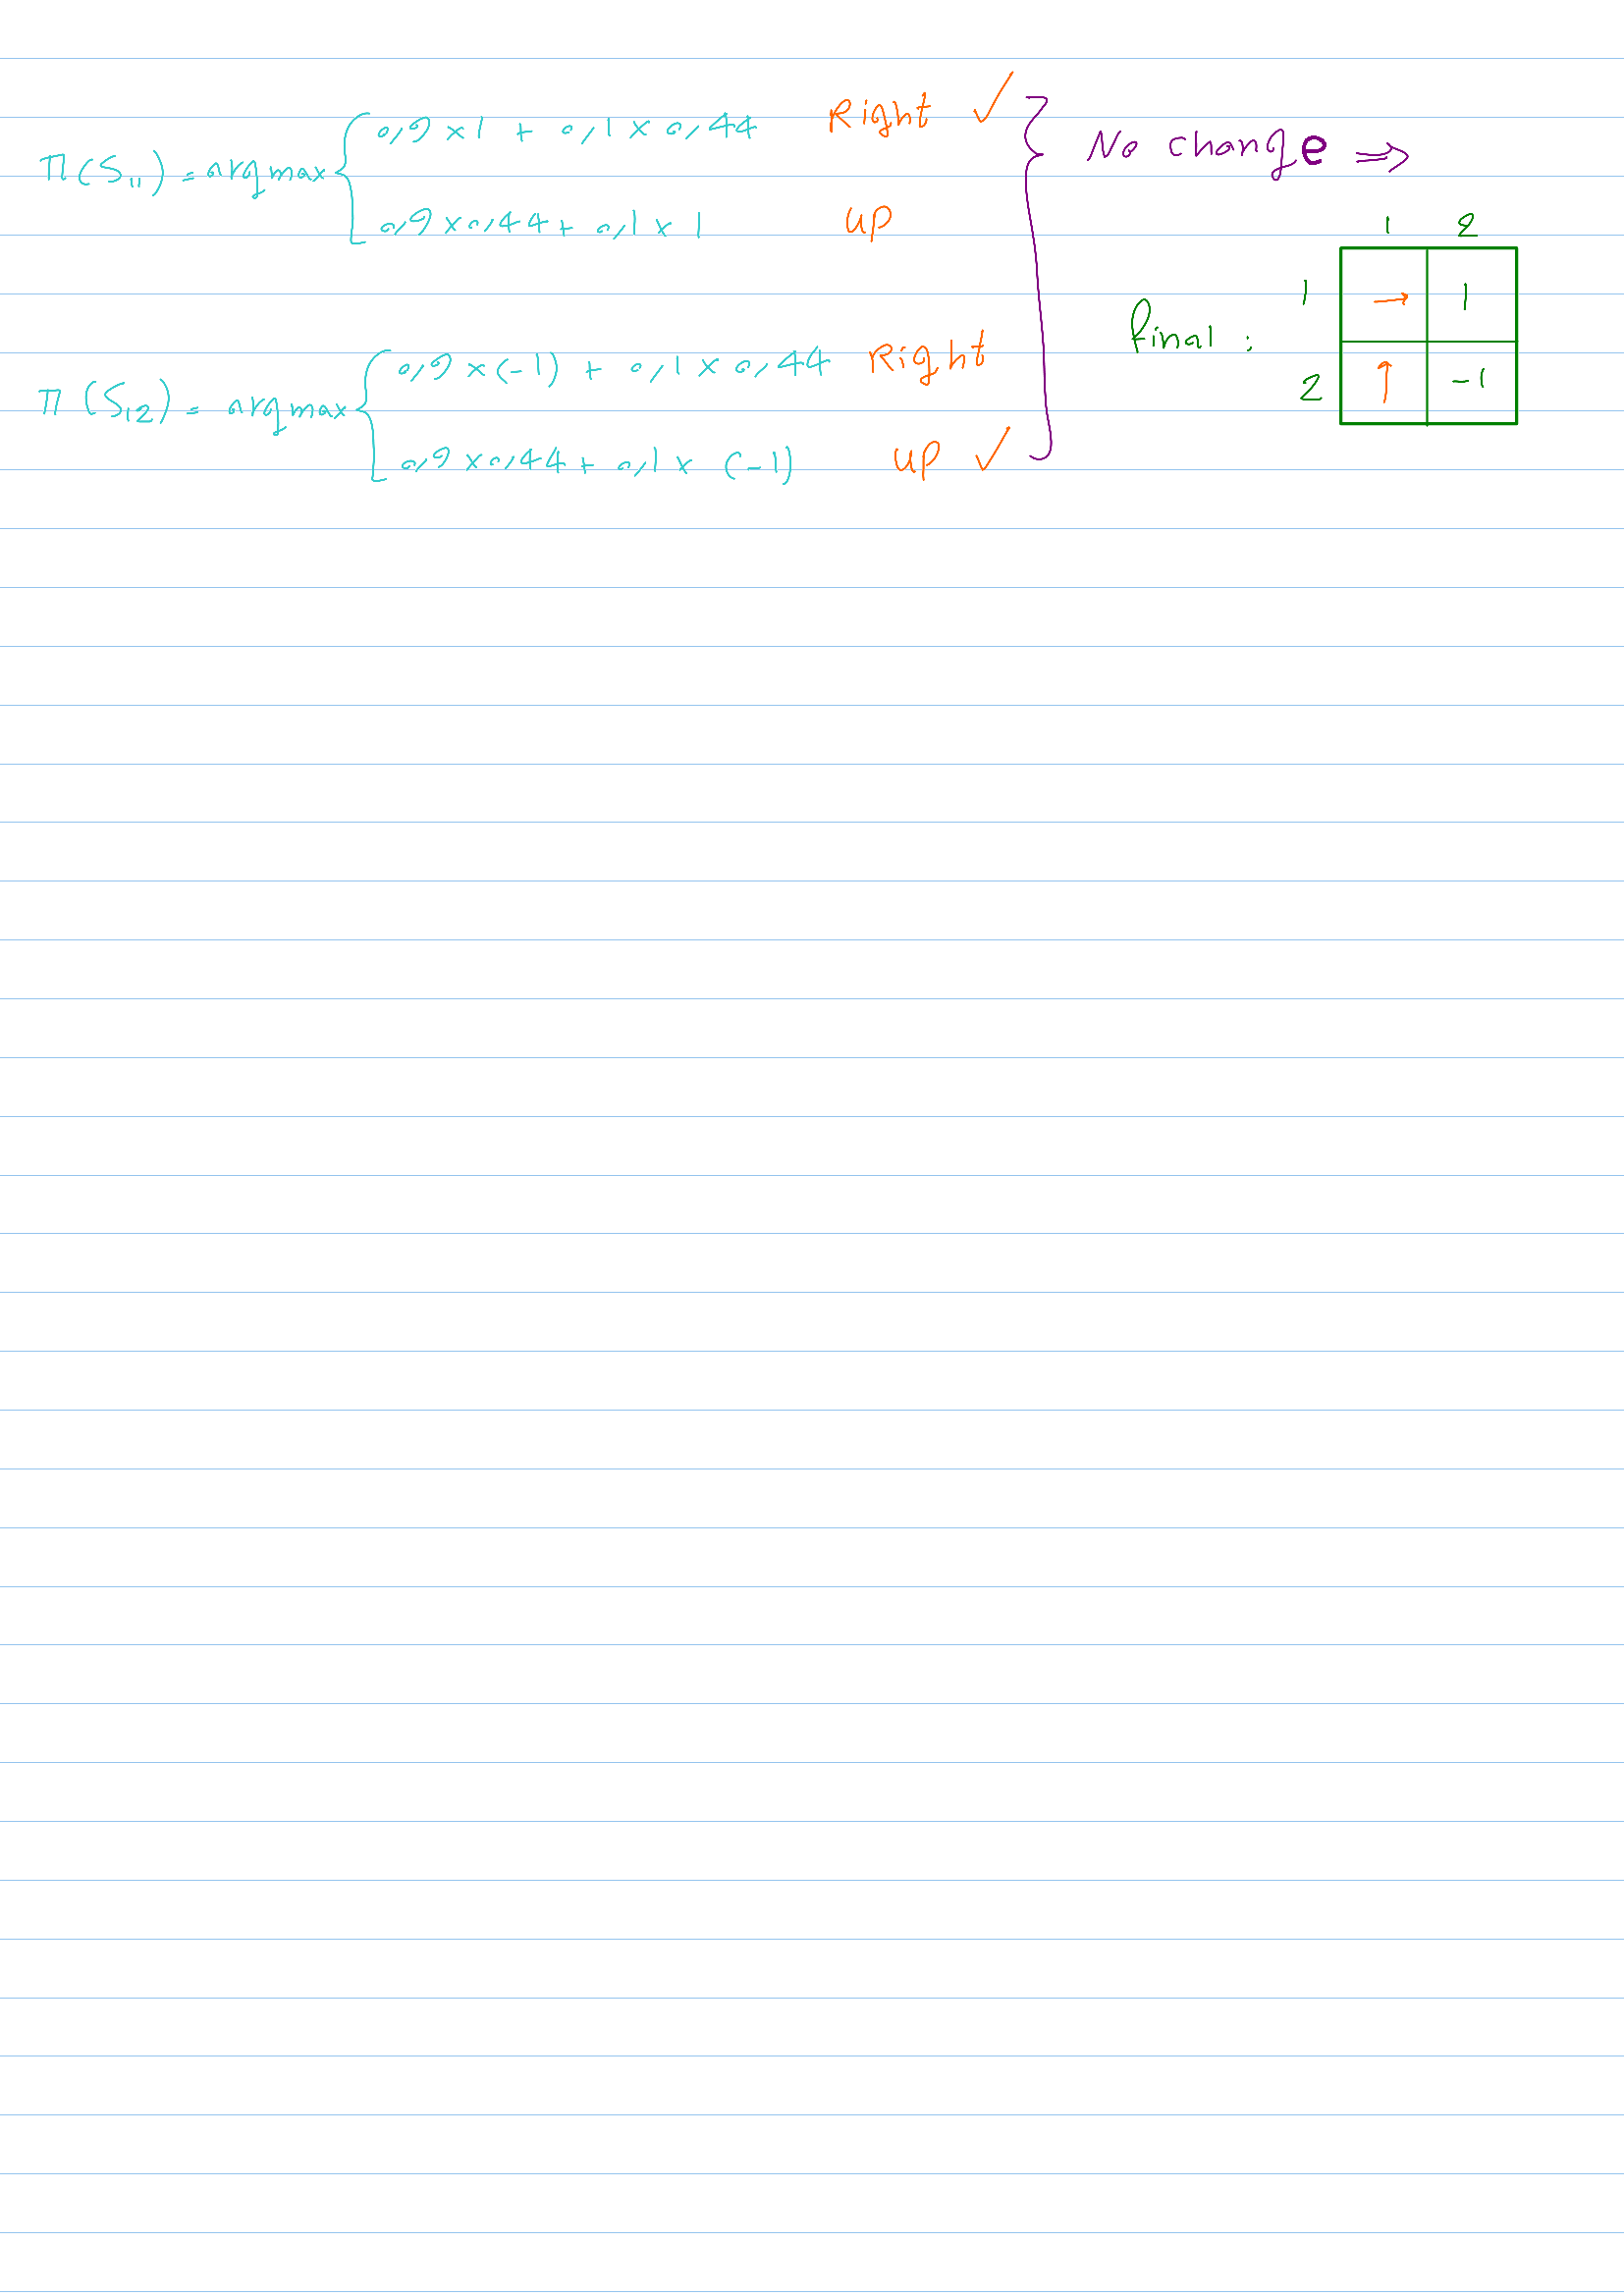 π(S₁₁) = argmax { 0,9 × 1 + 0,1 × 0,44 Right ✓
0,9 × 0,44 + 0,1 × 1 up
} No change ⇒
π(S₁₂) = argmax { 0,9 × (-1) + 0,1 × 0,44 Right
0,9 × 0,44 + 0,1 × (-1) up ✓
final :
1 2
1 → 1
2 ↑ -1